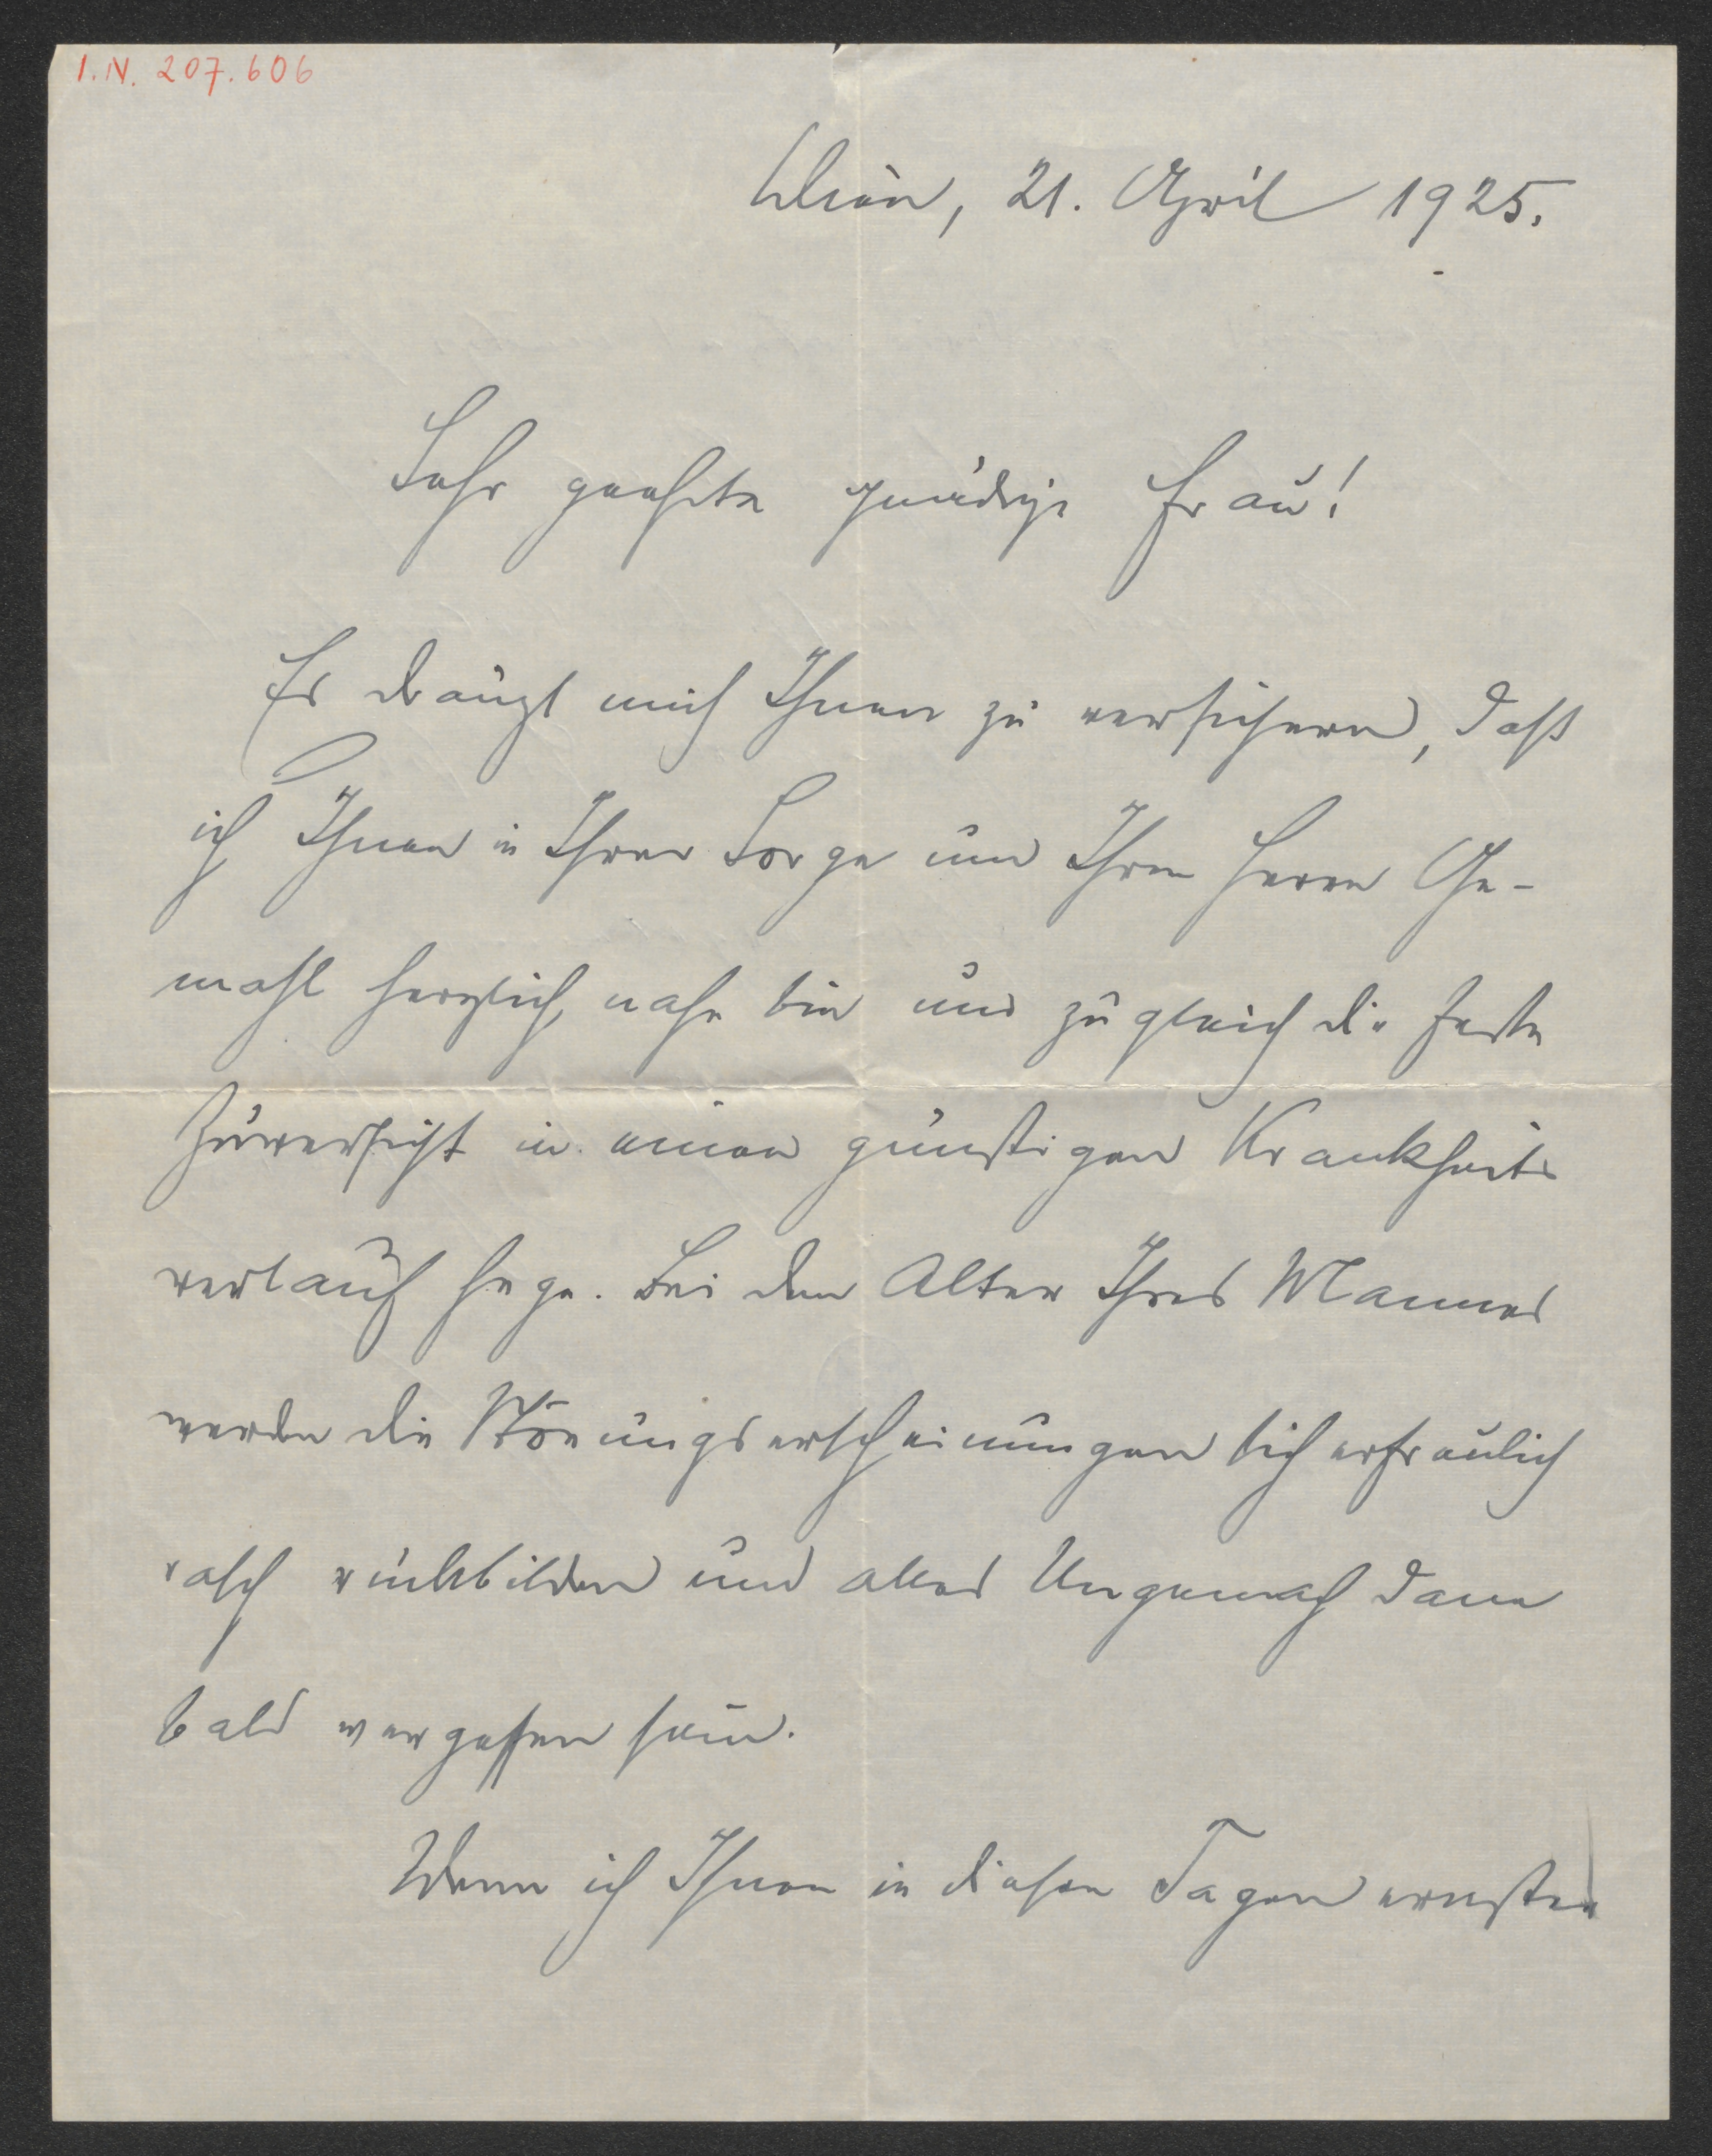 I.N. 207.606
Wien, 21. April 1925.
Sehr geehrte gnädige Frau!
Es drängt mich Ihnen zu versichern, daß
ich Ihnen in Ihrer Sorge um Ihren Herrn Ge-
mahl herzlich nahe bin und zugleich die feste
Zuversicht in einen günstigen Krankheits
verlauf hege. Bei dem Alter Ihres Mannes
werden die Störungserscheinungen sich erfreulich
rasch rückbilden und alles Ungemach dann
bald vergessen sein.
Wenn ich Ihnen in diesen Tagen ernster